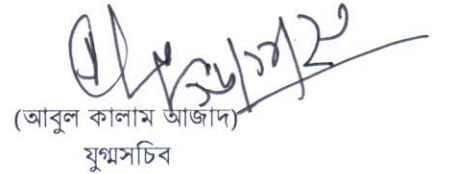 (আবুল কালাম আজাদ)
যুগ্মসচিব